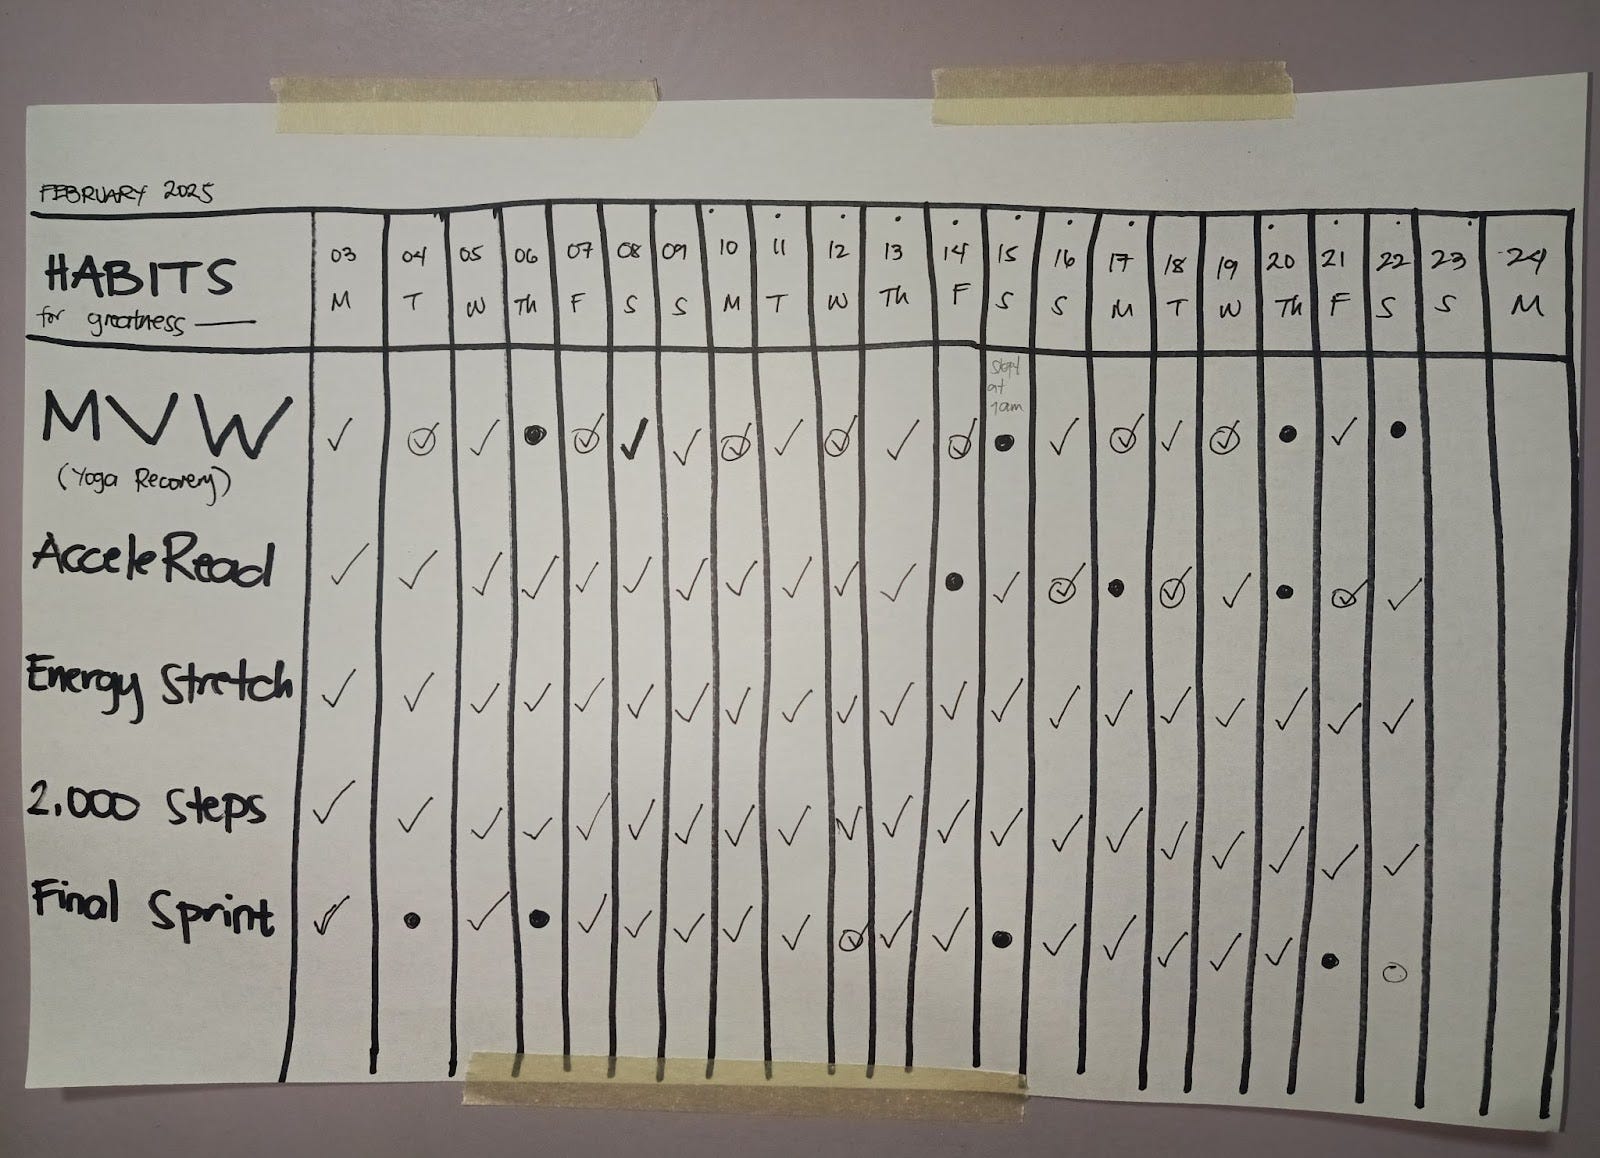 FEBRUARY 2025
HABITS
for greatness
03 04 05 06 07 08 09 10 11 12 13 14 15 16 17 18 19 20 21 22 23 24
M T W Th F S S M T W Th F S S M T W Th F S S M
at
1am
MVW
(Yoga Recovery)
AcceleRead
Energy Stretch
2.000 Steps
Final Sprint